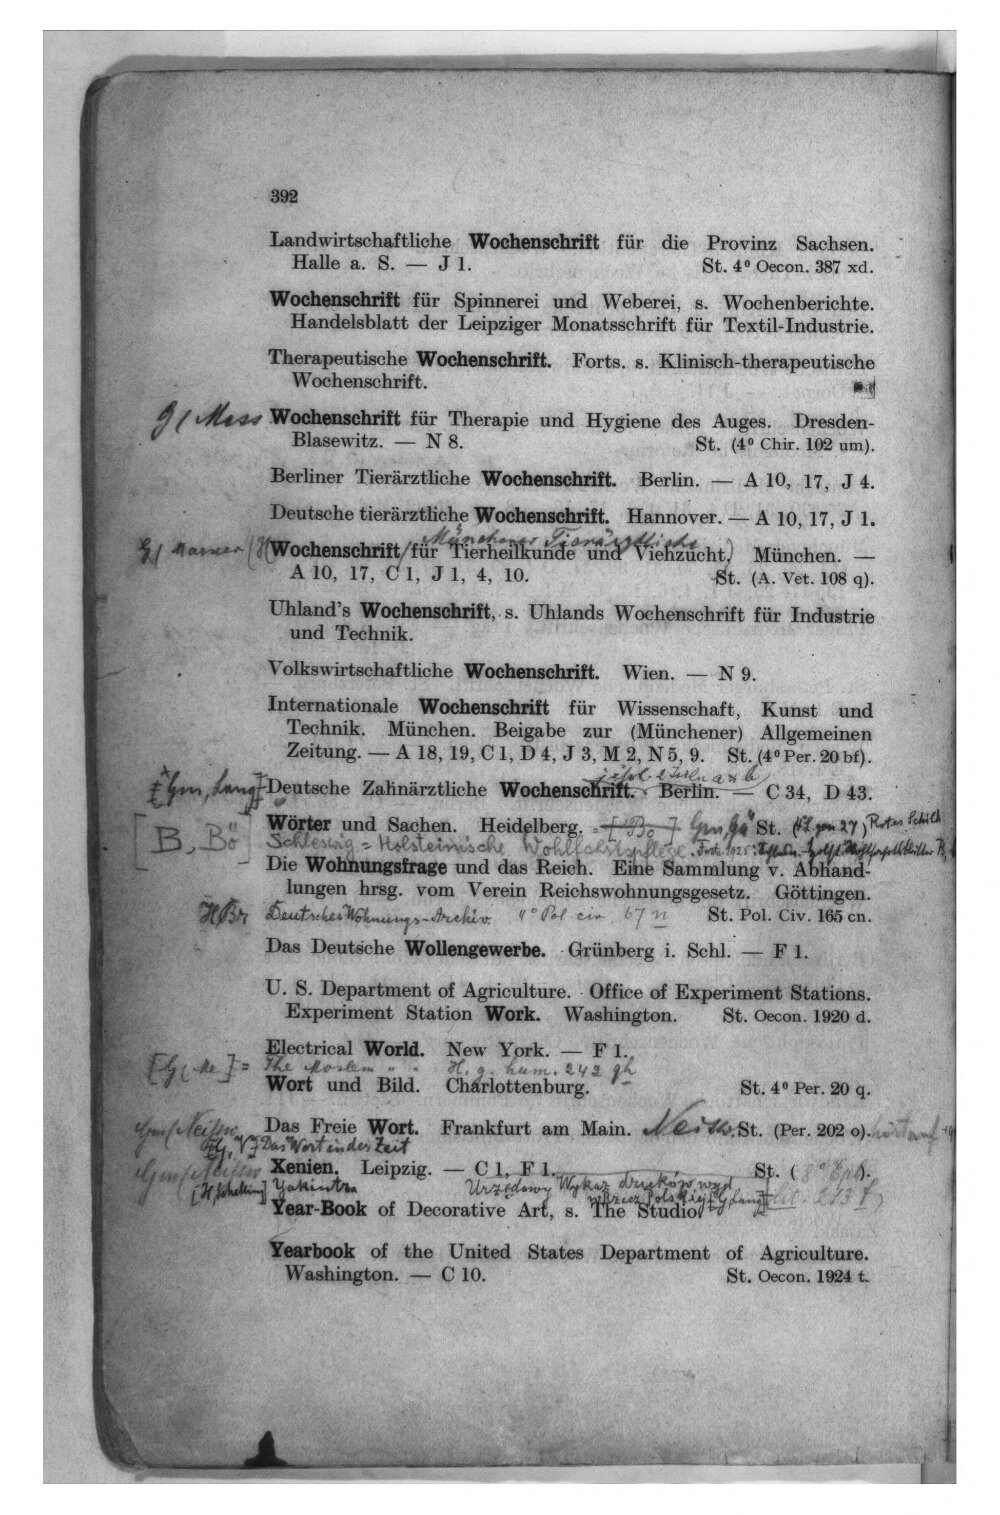 392
Landwirtschaftliche Wochenschrift für die Provinz Sachsen.
Halle a. S. — J 1. St. 4⁰ Oecon. 387 xd.
Wochenschrift für Spinnerei und Weberei, s. Wochenberichte.
Handelsblatt der Leipziger Monatsschrift für Textil-Industrie.
Therapeutische Wochenschrift. Forts. s. Klinisch-therapeutische
Wochenschrift.
Wochenschrift für Therapie und Hygiene des Auges. Dresden-
Blasewitz. — N 8. St. (4⁰ Chir. 102 um).
Berliner Tierärztliche Wochenschrift. Berlin. — A 10, 17, J 4.
Deutsche tierärztliche Wochenschrift. Hannover. — A 10, 17, J 1.
Münchener Tierärztliche
Wochenschrift für Tierheilkunde und Viehzucht. München. —
A 10, 17, C 1, J 1, 4, 10. St. (A. Vet. 108 q).
Uhland's Wochenschrift, s. Uhlands Wochenschrift für Industrie
und Technik.
Volkswirtschaftliche Wochenschrift. Wien. — N 9.
Internationale Wochenschrift für Wissenschaft, Kunst und
Technik. München. Beigabe zur (Münchener) Allgemeinen
Zeitung. — A 18, 19, C 1, D 4, J 3, M 2, N 5, 9. St. (4⁰ Per. 20 bf).
Deutsche Zahnärztliche Wochenschrift. Berlin. — C 34, D 43.
[B, Bö] Wörter und Sachen. Heidelberg. [Bö] St. Rotes Schild
Schleswig-Holsteinische Wohlfahrtspflege.
Die Wohnungsfrage und das Reich. Eine Sammlung v. Abhand-
lungen hrsg. vom Verein Reichswohnungsgesetz. Göttingen.
St. Pol. Civ. 165 cn.
H Br Deutsches Wohnungs-Archiv. 4° Pol civ 67 n
Das Deutsche Wollengewerbe. Grünberg i. Schl. — F 1.
U. S. Department of Agriculture. Office of Experiment Stations.
Experiment Station Work. Washington. St. Oecon. 1920 d.
Electrical World. New York. — F 1.
The Moslem " " H. g. hum. 242 gh
Wort und Bild. Charlottenburg. St. 4⁰ Per. 20 q.
Das Freie Wort. Frankfurt am Main. St. (Per. 202 o).
Das Wort in der Zeit
Xenien. Leipzig. — C 1, F 1. St. (8° Eph).
Urzędowy Wykaz druków wyd.
w Rzecz. Polskiej
Year-Book of Decorative Art, s. The Studio.
Yearbook of the United States Department of Agriculture.
Washington. — C 10. St. Oecon. 1924 t.